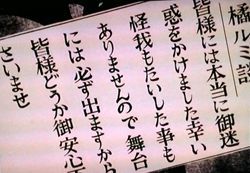 橘ルミ談
皆様には本当に御迷
惑をかけました幸い
怪我もたいした事も
ありませんので舞台
には必ず出ますから
皆様どうか御安心下
さいませ